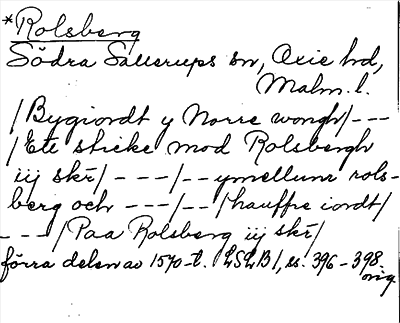 *Rolsberg
Södra Sallerups sn, Oxie hd,
Malm. l.
/Bygiordt y Norre wongh/---
/Ete sticke mod Rolsbergh
iij skr/ ---/-- ymellum rols-
berg och ---/--/hauffre iordt/
---/Paa Rolsberg iij skr/
förra delen av 1570-t. LSLB1, ss. 396-398.
orig.